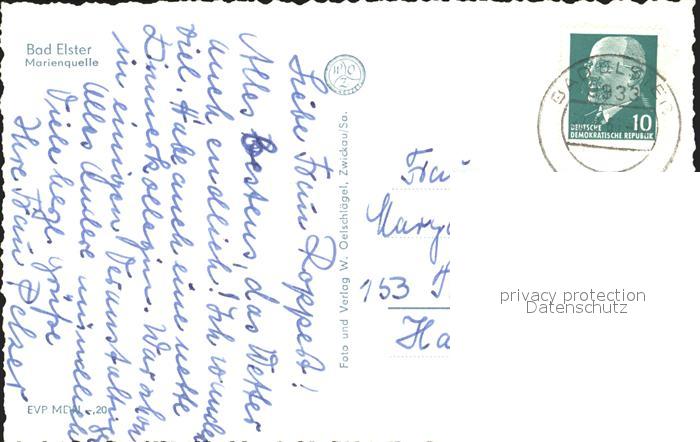 Bad Elster
Marienquelle
Liebe Frau Roppelt!
Alles Bestens, das Wetter
auch endlich! Ich wandle
viel. Habe auch eine nette
Zimmerkollegin. War schon
in einigen
Alles Andere mündlich
Viele herzl. Grüße
Ihre Frau Pelzer
EVP MDN -,20
Foto und Verlag W. Oelschlägel, Zwickau/Sa.
BAD ELSTER
9933
10
DEUTSCHE
DEMOKRATISCHE REPUBLIK
Frau
153
privacy protection
Datenschutz